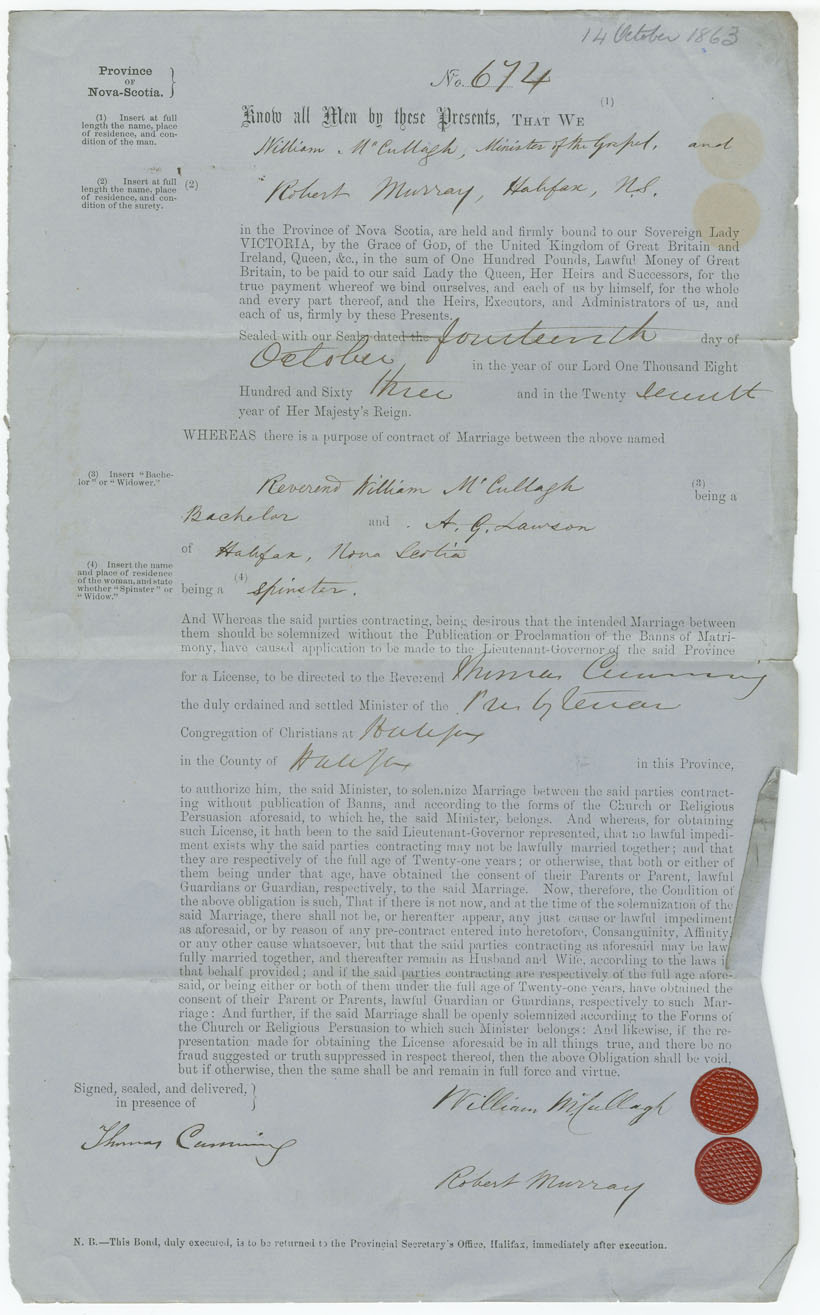 14 October 1863
Province
OF
Nova-Scotia.
No. 674
(1)
Know all Men by these Presents, THAT WE
(1) Insert at full
length the name, place
of residence, and con-
dition of the man.
William McCullagh, Minister of the Gospel, and
(2) Insert at full
length the name, place
of residence, and con-
dition of the surety.
(2) Robert Murray, Halifax, N.S.
in the Province of Nova Scotia, are held and firmly bound to our Sovereign Lady
VICTORIA, by the Grace of GOD, of the United Kingdom of Great Britain and
Ireland, Queen, &c., in the sum of One Hundred Pounds, Lawful Money of Great
Britain, to be paid to our said Lady the Queen, Her Heirs and Successors, for the
true payment whereof we bind ourselves, and each of us by himself, for the whole
and every part thereof, and the Heirs, Executors, and Administrators of us, and
each of us, firmly by these Presents.
Sealed with our Seals dated the fourteenth day of
October in the year of our Lord One Thousand Eight
Hundred and Sixty three and in the Twenty seventh
year of Her Majesty's Reign.
WHEREAS there is a purpose of contract of Marriage between the above named
(3) Insert "Bache-
lor" or "Widower."
Reverend William McCullagh (3) being a
Bachelor and A. G. Lawson
of Halifax, Nova Scotia
(4) Insert the name
and place of residence
of the woman, and state
whether "Spinster" or
"Widow."
being a (4) Spinster.
And Whereas the said parties contracting, being desirous that the intended Marriage between
them should be solemnized without the Publication or Proclamation of the Banns of Matri-
mony, have caused application to be made to the Lieutenant-Governor of the said Province
for a License, to be directed to the Reverend Thomas Cumming
the duly ordained and settled Minister of the Presbyterian
Congregation of Christians at Halifax
in the County of Halifax in this Province,
to authorize him, the said Minister, to solemnize Marriage between the said parties contract-
ing without publication of Banns, and according to the forms of the Church or Religious
Persuasion aforesaid, to which he, the said Minister, belongs. And whereas, for obtaining
such License, it hath been to the said Lieutenant-Governor represented, that no lawful impedi-
ment exists why the said parties contracting may not be lawfully married together; and that
they are respectively of the full age of Twenty-one years; or otherwise, that both or either of
them being under that age, have obtained the consent of their Parents or Parent, lawful
Guardians or Guardian, respectively, to the said Marriage. Now, therefore, the Condition of
the above obligation is such, That if there is not now, and at the time of the solemnization of the
said Marriage, there shall not be, or hereafter appear, any just cause or lawful impediment
as aforesaid, or by reason of any pre-contract entered into heretofore, Consanguinity, Affinity,
or any other cause whatsoever, but that the said parties contracting as aforesaid may be law
fully married together, and thereafter remain as Husband and Wife, according to the laws i
that behalf provided; and if the said parties contracting are respectively of the full age afore-
said, or being either or both of them under the full age of Twenty-one years, have obtained the
consent of their Parent or Parents, lawful Guardian or Guardians, respectively to such Mar-
riage: And further, if the said Marriage shall be openly solemnized according to the Forms of
the Church or Religious Persuasion to which such Minister belongs: And likewise, if the re-
presentation made for obtaining the License aforesaid be in all things true, and there be no
fraud suggested or truth suppressed in respect thereof, then the above Obligation shall be void,
but if otherwise, then the same shall be and remain in full force and virtue.
Signed, sealed, and delivered,
in presence of
William McCullagh
Thomas Cumming
Robert Murray
N. B.—This Bond, duly executed, is to be returned to the Provincial Secretary's Office, Halifax, immediately after execution.